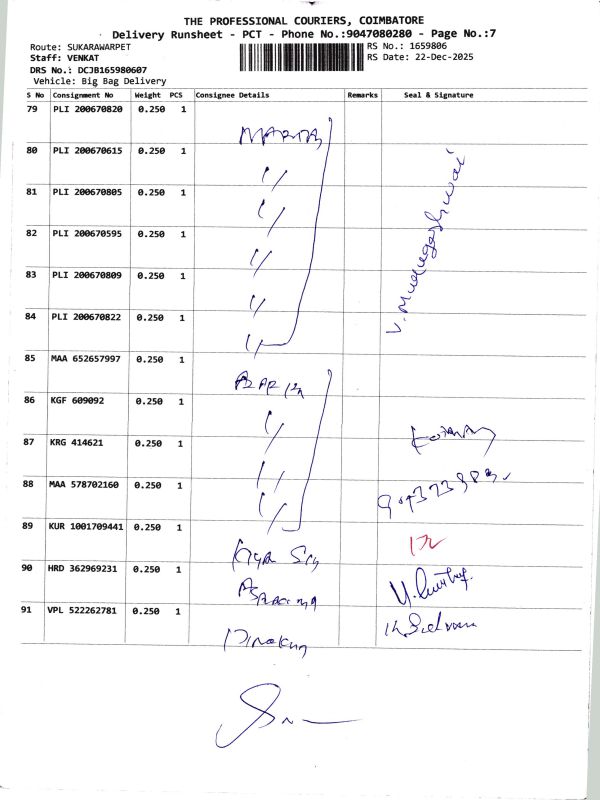 THE PROFESSIONAL COURIERS, COIMBATORE
Delivery Runsheet - PCT - Phone No.:9047080280 - Page No.:7
Route: SUKARAWARPET
RS No.: 1659806
Staff: VENKAT
RS Date: 22-Dec-2025
DRS No.: DCJB165980607
Vehicle: Big Bag Delivery
S No Consignment No Weight PCS Consignee Details Remarks Seal & Signature
79 PLI 200670820 0.250 1
80 PLI 200670615 0.250 1 〃
81 PLI 200670805 0.250 1 〃
82 PLI 200670595 0.250 1 〃
83 PLI 200670809 0.250 1 〃
84 PLI 200670822 0.250 1 〃
85 MAA 652657997 0.250 1
86 KGF 609092 0.250 1 〃
87 KRG 414621 0.250 1 〃
88 MAA 578702160 0.250 1 〃
89 KUR 1001709441 0.250 1
90 HRD 362969231 0.250 1
91 VPL 522262781 0.250 1